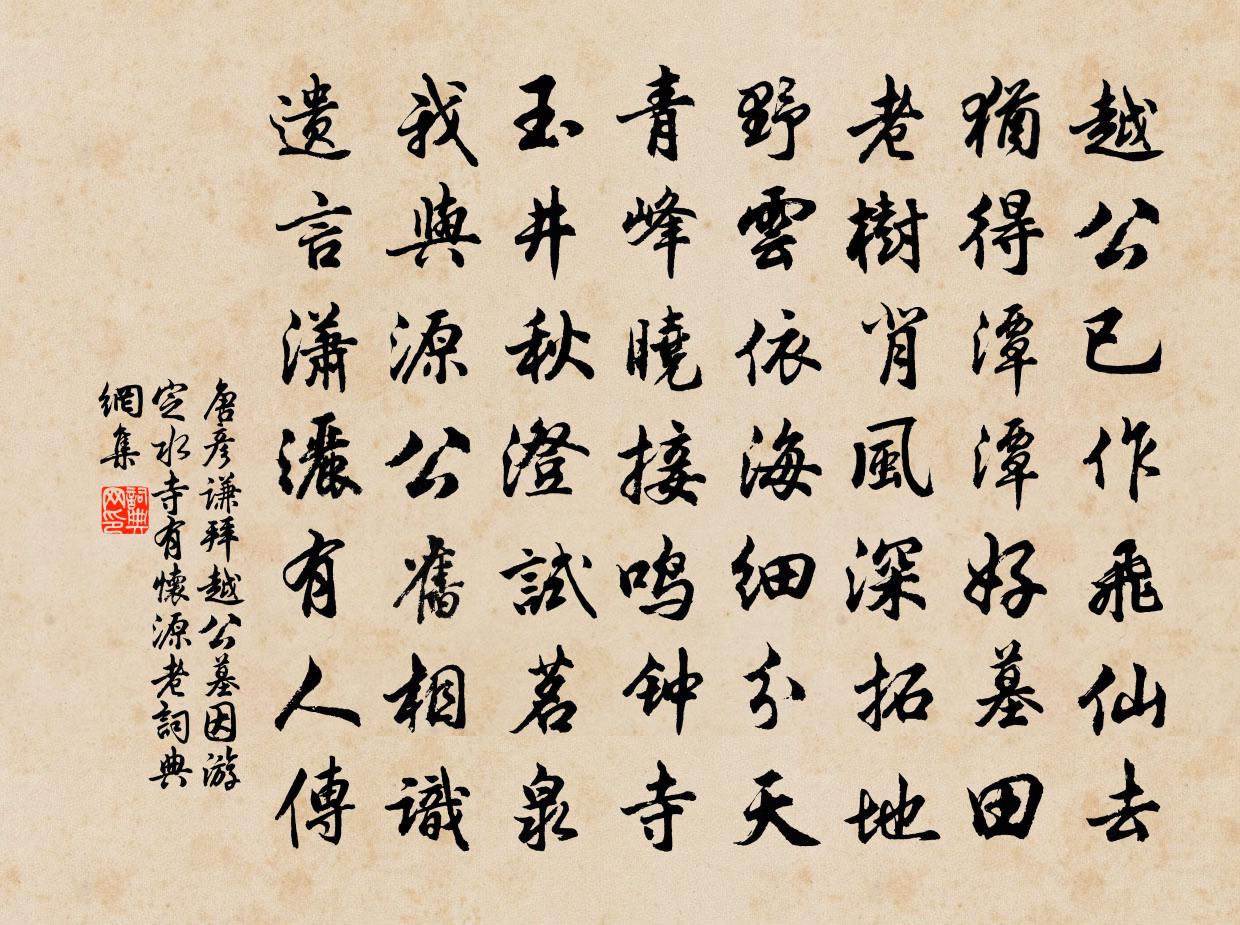 越公已作飛仙去
猶得潭潭好墓田
老樹背風深拓地
野雲依海細分天
青峰曉接鳴钟寺
玉井秋澄試茗泉
我與源公舊相識
遺言瀟灑有人傳
唐彥謙拜越公墓因游
定水寺有懷源老詞典
網集
詞典网印